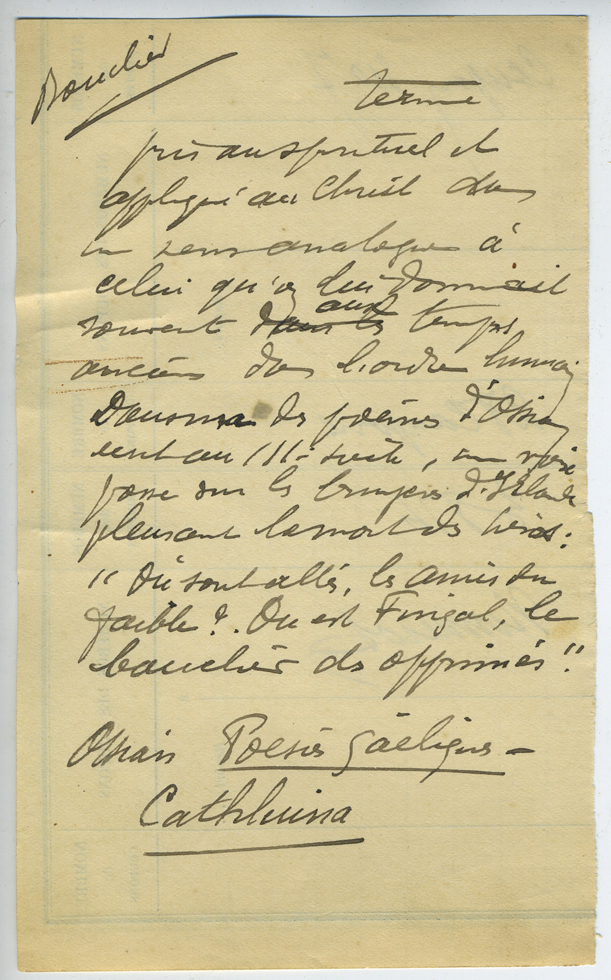 Bouclier
terme
pris au spirituel et
appliqué au Christ dans
un sens analogue à
celui qu'on lui donnait
souvent dans les aux temps
anciens dans l'ordre humain
Dans un des poèmes d'Ossian
écrit au IIIe siècle, une voix
passe sur les bruyères d'Irlande
pleurant la mort des héros:
"Où sont allés, les amis du
faible? Où est Fingal, le
bouclier des opprimés"!
Ossian Poésies Gaéliques –
Cathluina